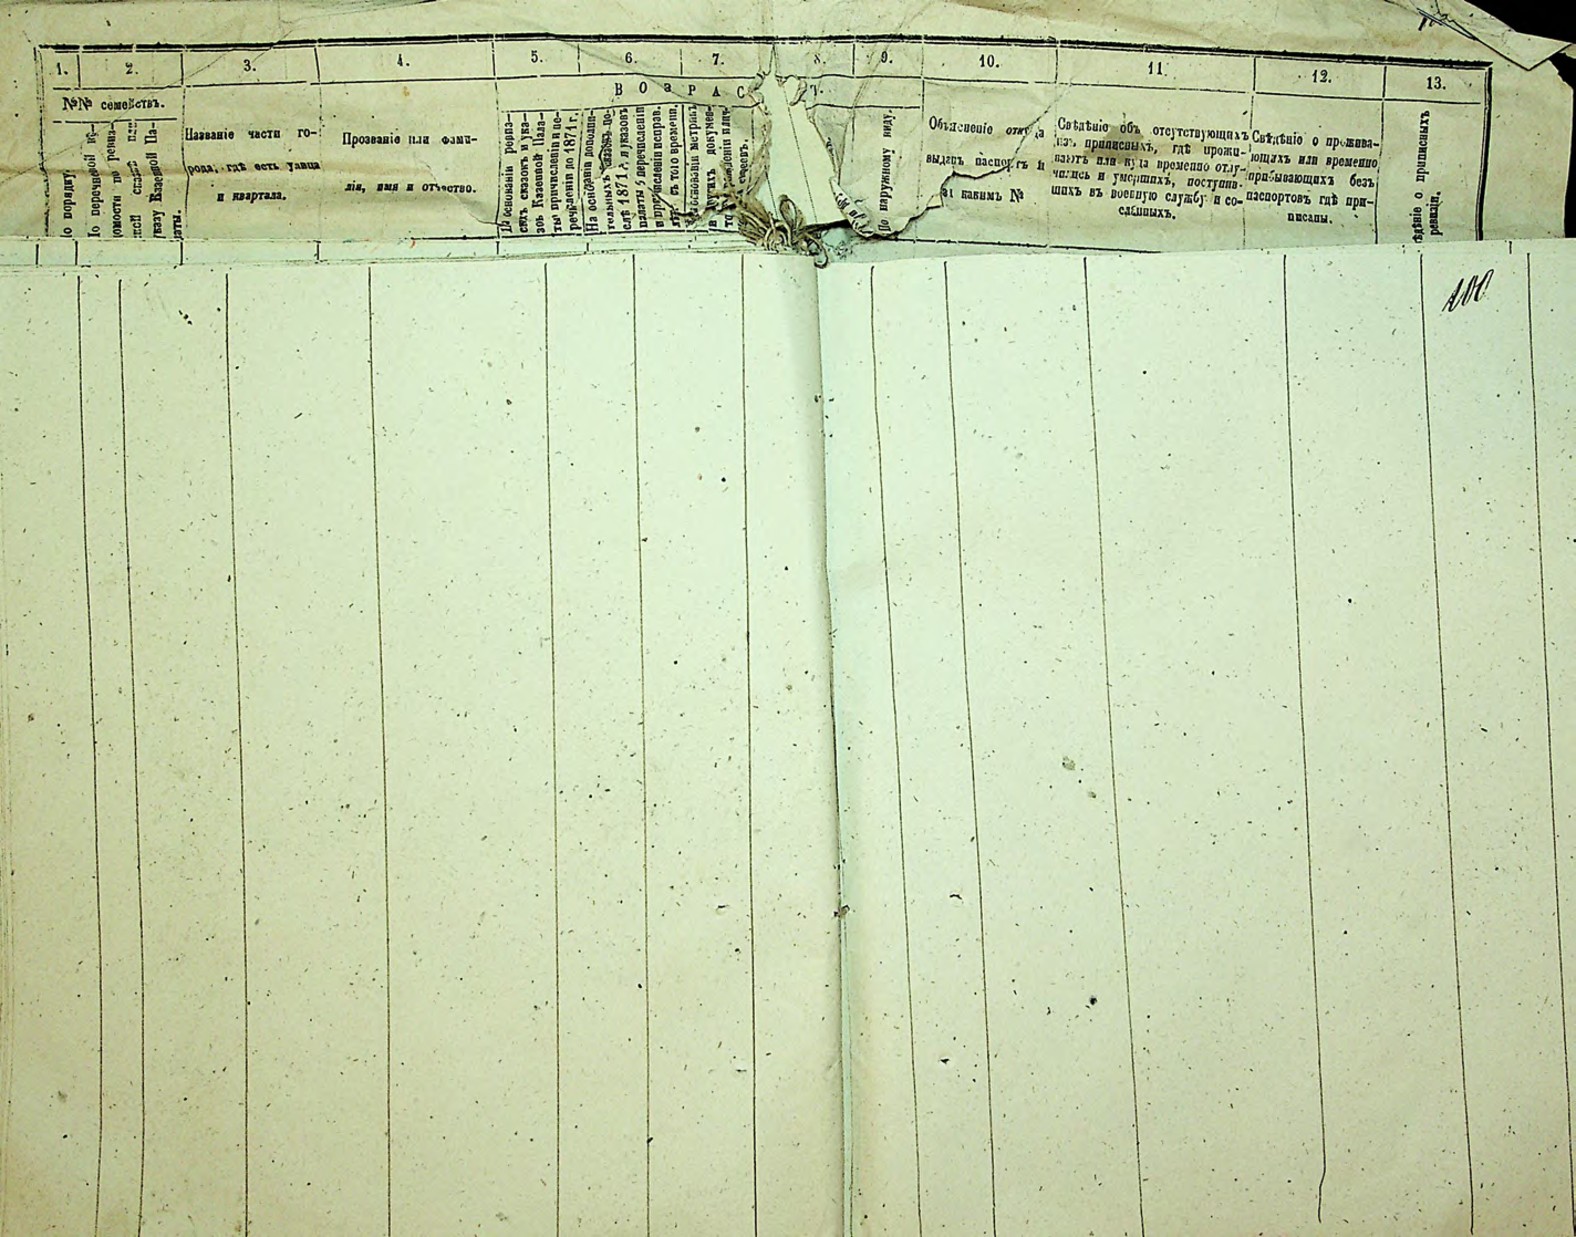 1. 2. 3. 4. 5. 6. 7. 8. 9. 10. 11. 12. 13.
ВОЗРАСТ.
№№ семействъ.
По порядку.
По перечневой вѣ-
домости по ревиз-
ской сказкѣ или
указу Казенной Па-
латы.
Названіе части го-
рода, гдѣ есть улица
и квартала.
Прозваніе или фами-
лія, имя и отчество.
На основаніи ревиз-
скихъ сказокъ и ука-
зовъ Казенной Пала-
ты о причисленіи и пе-
речисленіи до 1874 г.
На основаніи дополни-
тельныхъ
слѣ 1874 г. и указовъ
палаты о перечисленіи
и причисленіи исправ.
съ того времени.
На основаніи метрик.
и другихъ докумен-
По наружному виду.
Объясненіе
выданъ паспортъ и
за какимъ №
Свѣдѣніе объ отсутствующихъ
изъ приписныхъ, гдѣ прожи-
ваютъ или куда временно отлу-
чились и умершихъ, поступив-
шихъ въ военную службу и со-
сланныхъ.
Свѣдѣніе о прожива-
ющихъ или временно
пребывающихъ безъ
паспортовъ гдѣ при-
писаны.
Свѣдѣніе о приписныхъ
ревизіи.
100